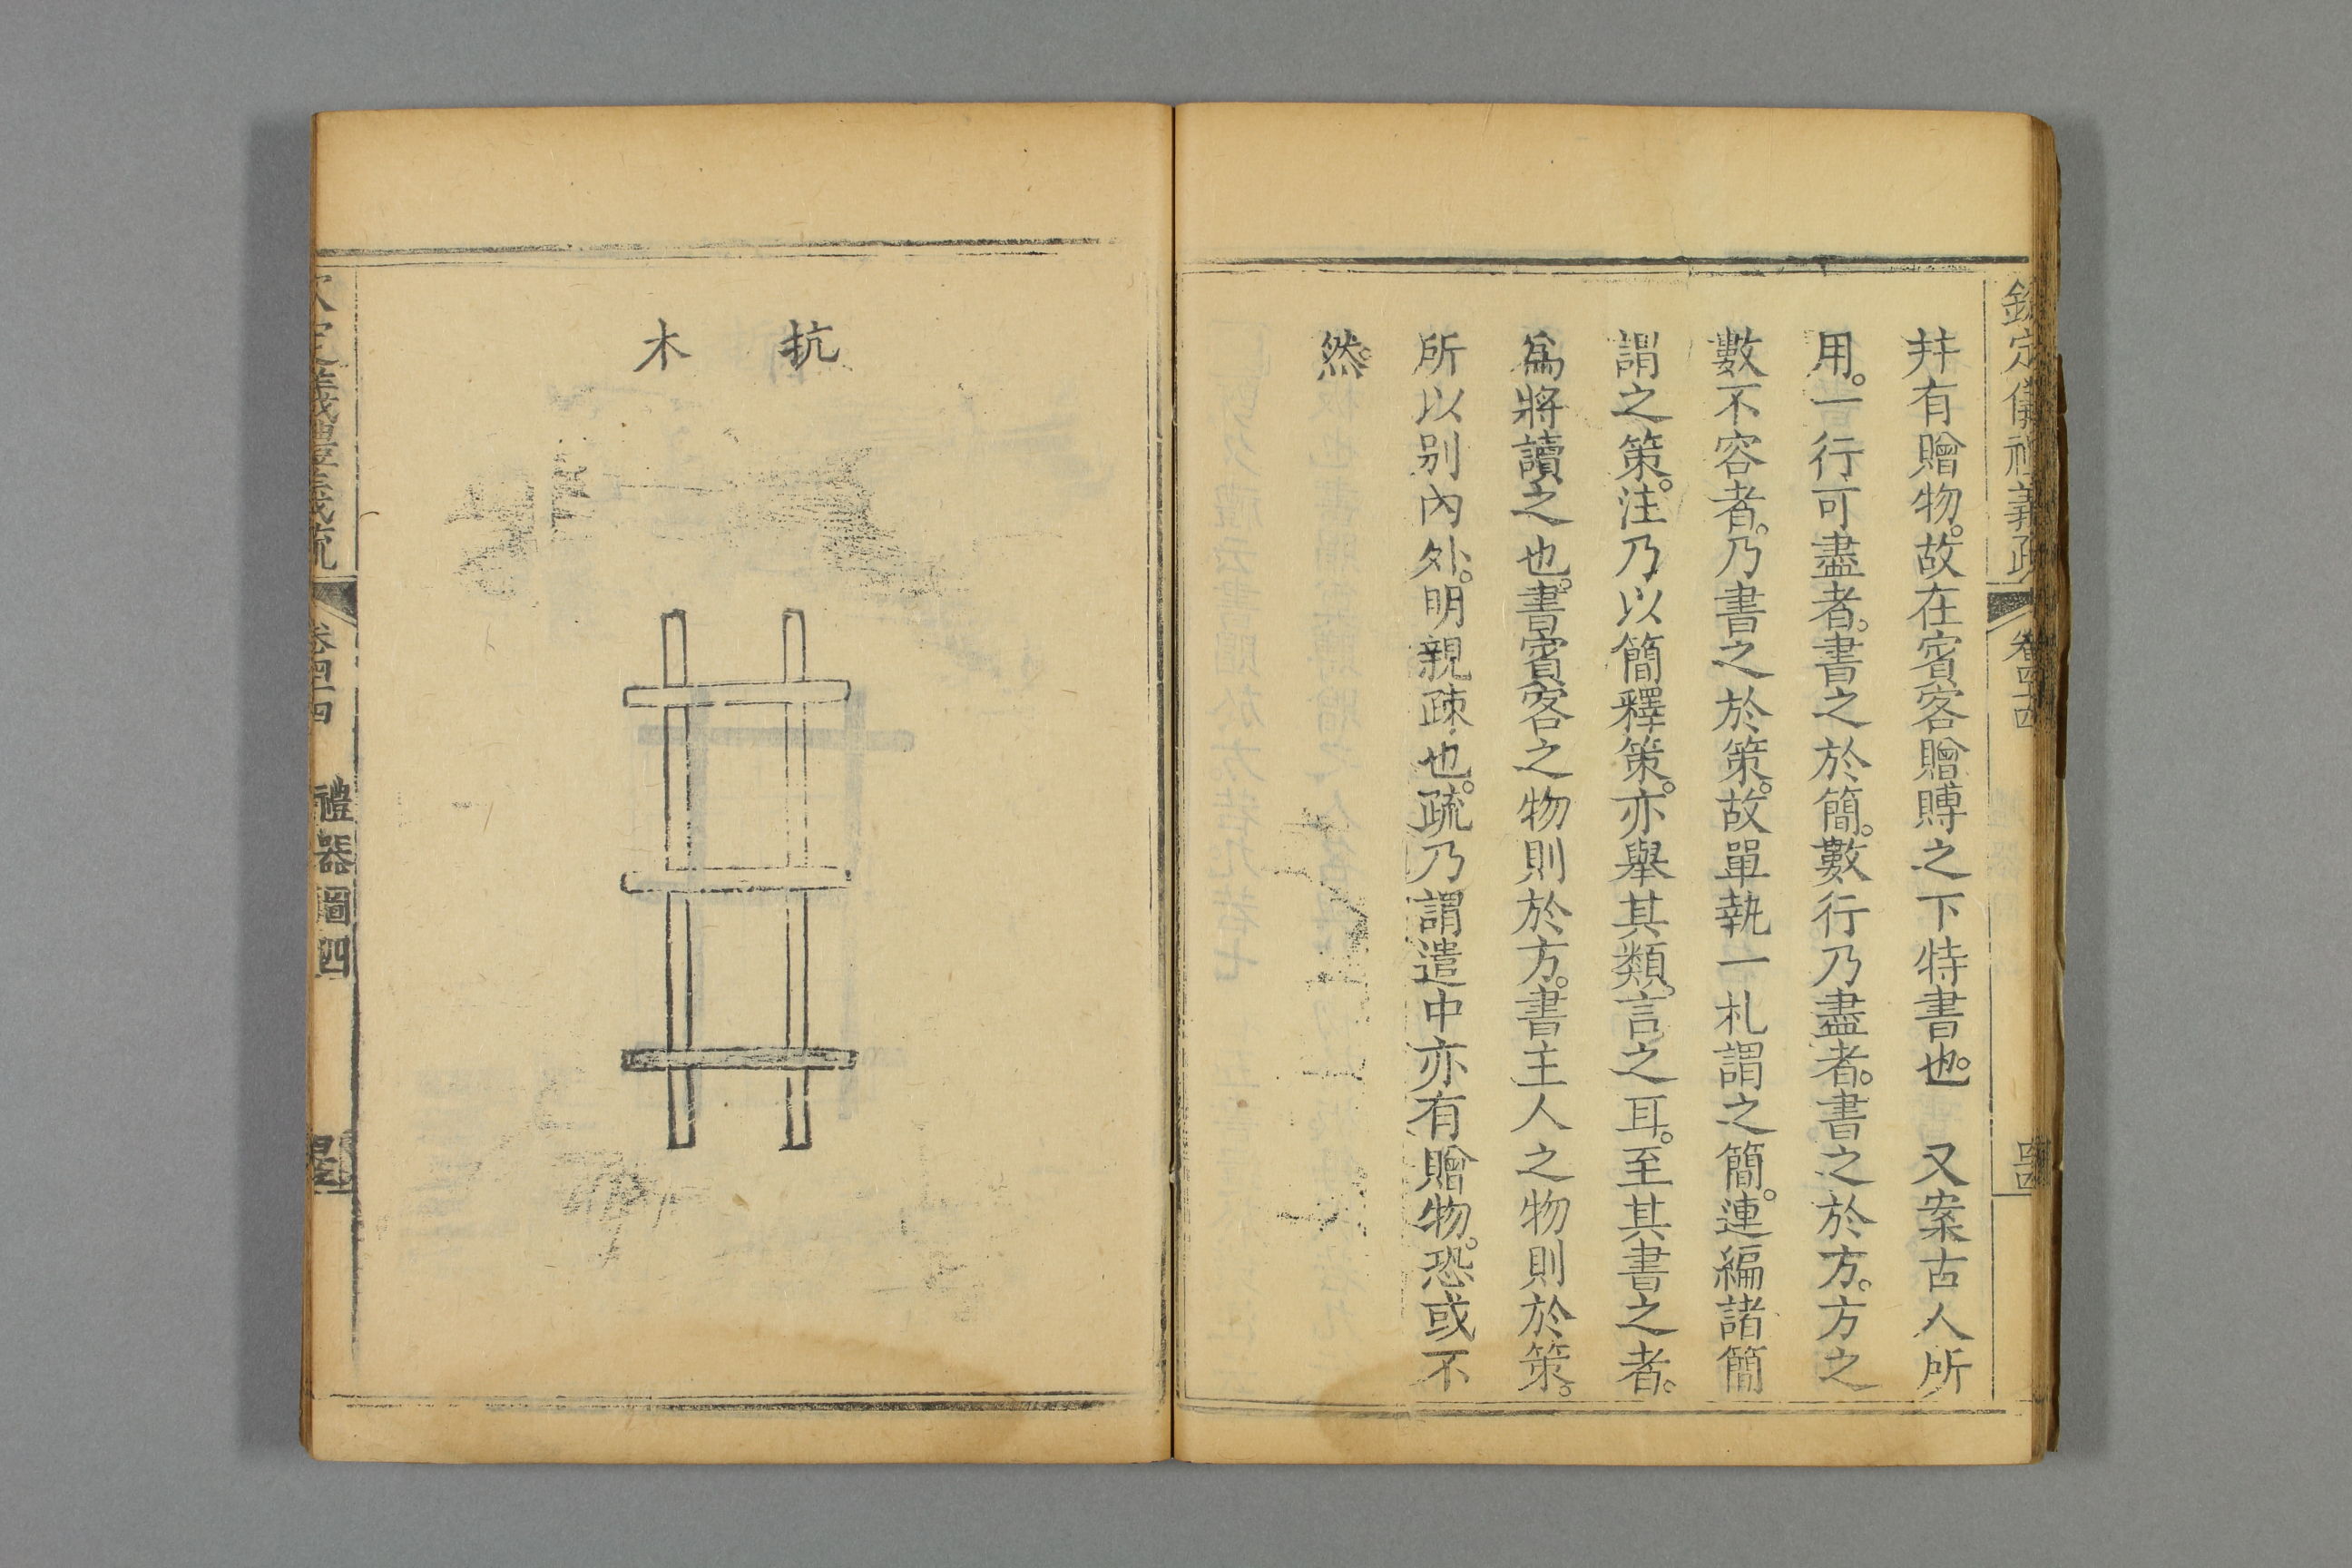 欽定儀禮義疏 卷四十四 四十四
幷有贈物。故在賓客贈賻之下特書也。 又案古人所
用。一行可盡者。書之於簡。數行乃盡者。書之於方。方之
數不容者。乃書之於策。故單執一札謂之簡。連編諸簡
謂之策。注乃以簡釋策。亦舉其類言之耳。至其書之者。
爲將讀之也。書賓客之物則於方。書主人之物則於策。
所以别內外。明親疎也。疏乃謂遣中亦有贈物。恐或不
然。
抗木
欽定儀禮義疏 卷四十四 禮器圖四